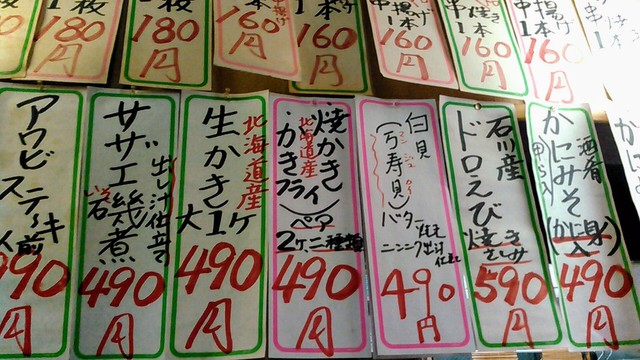 1枚
180
円
1枚
180
円
160
円
1本
160
円
串揚げ
1本
160
円
串焼き
1本
160
円
串揚げ
1本
160
円
アワビステーキ
人前
990
円
サザエ磯煮
出し汁仕立て
490
円
北海道産
生かき
大1ケ
490
円
焼かき
北海道産
かきフライ
ペア
2ケ、二種類
490
円
白貝
(万寿貝)
マンジュガイ
バター
ニンニク出汁
490
円
石川産
ドロえび
焼き
さしみ
590
円
酒肴
かにみそ
甲ら入
(かに身入)
490
円